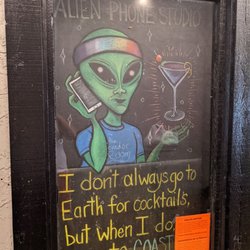 ALIEN PHONE STUDIO
I dont always go to
Earth for cocktails,
but when I do
to COAST